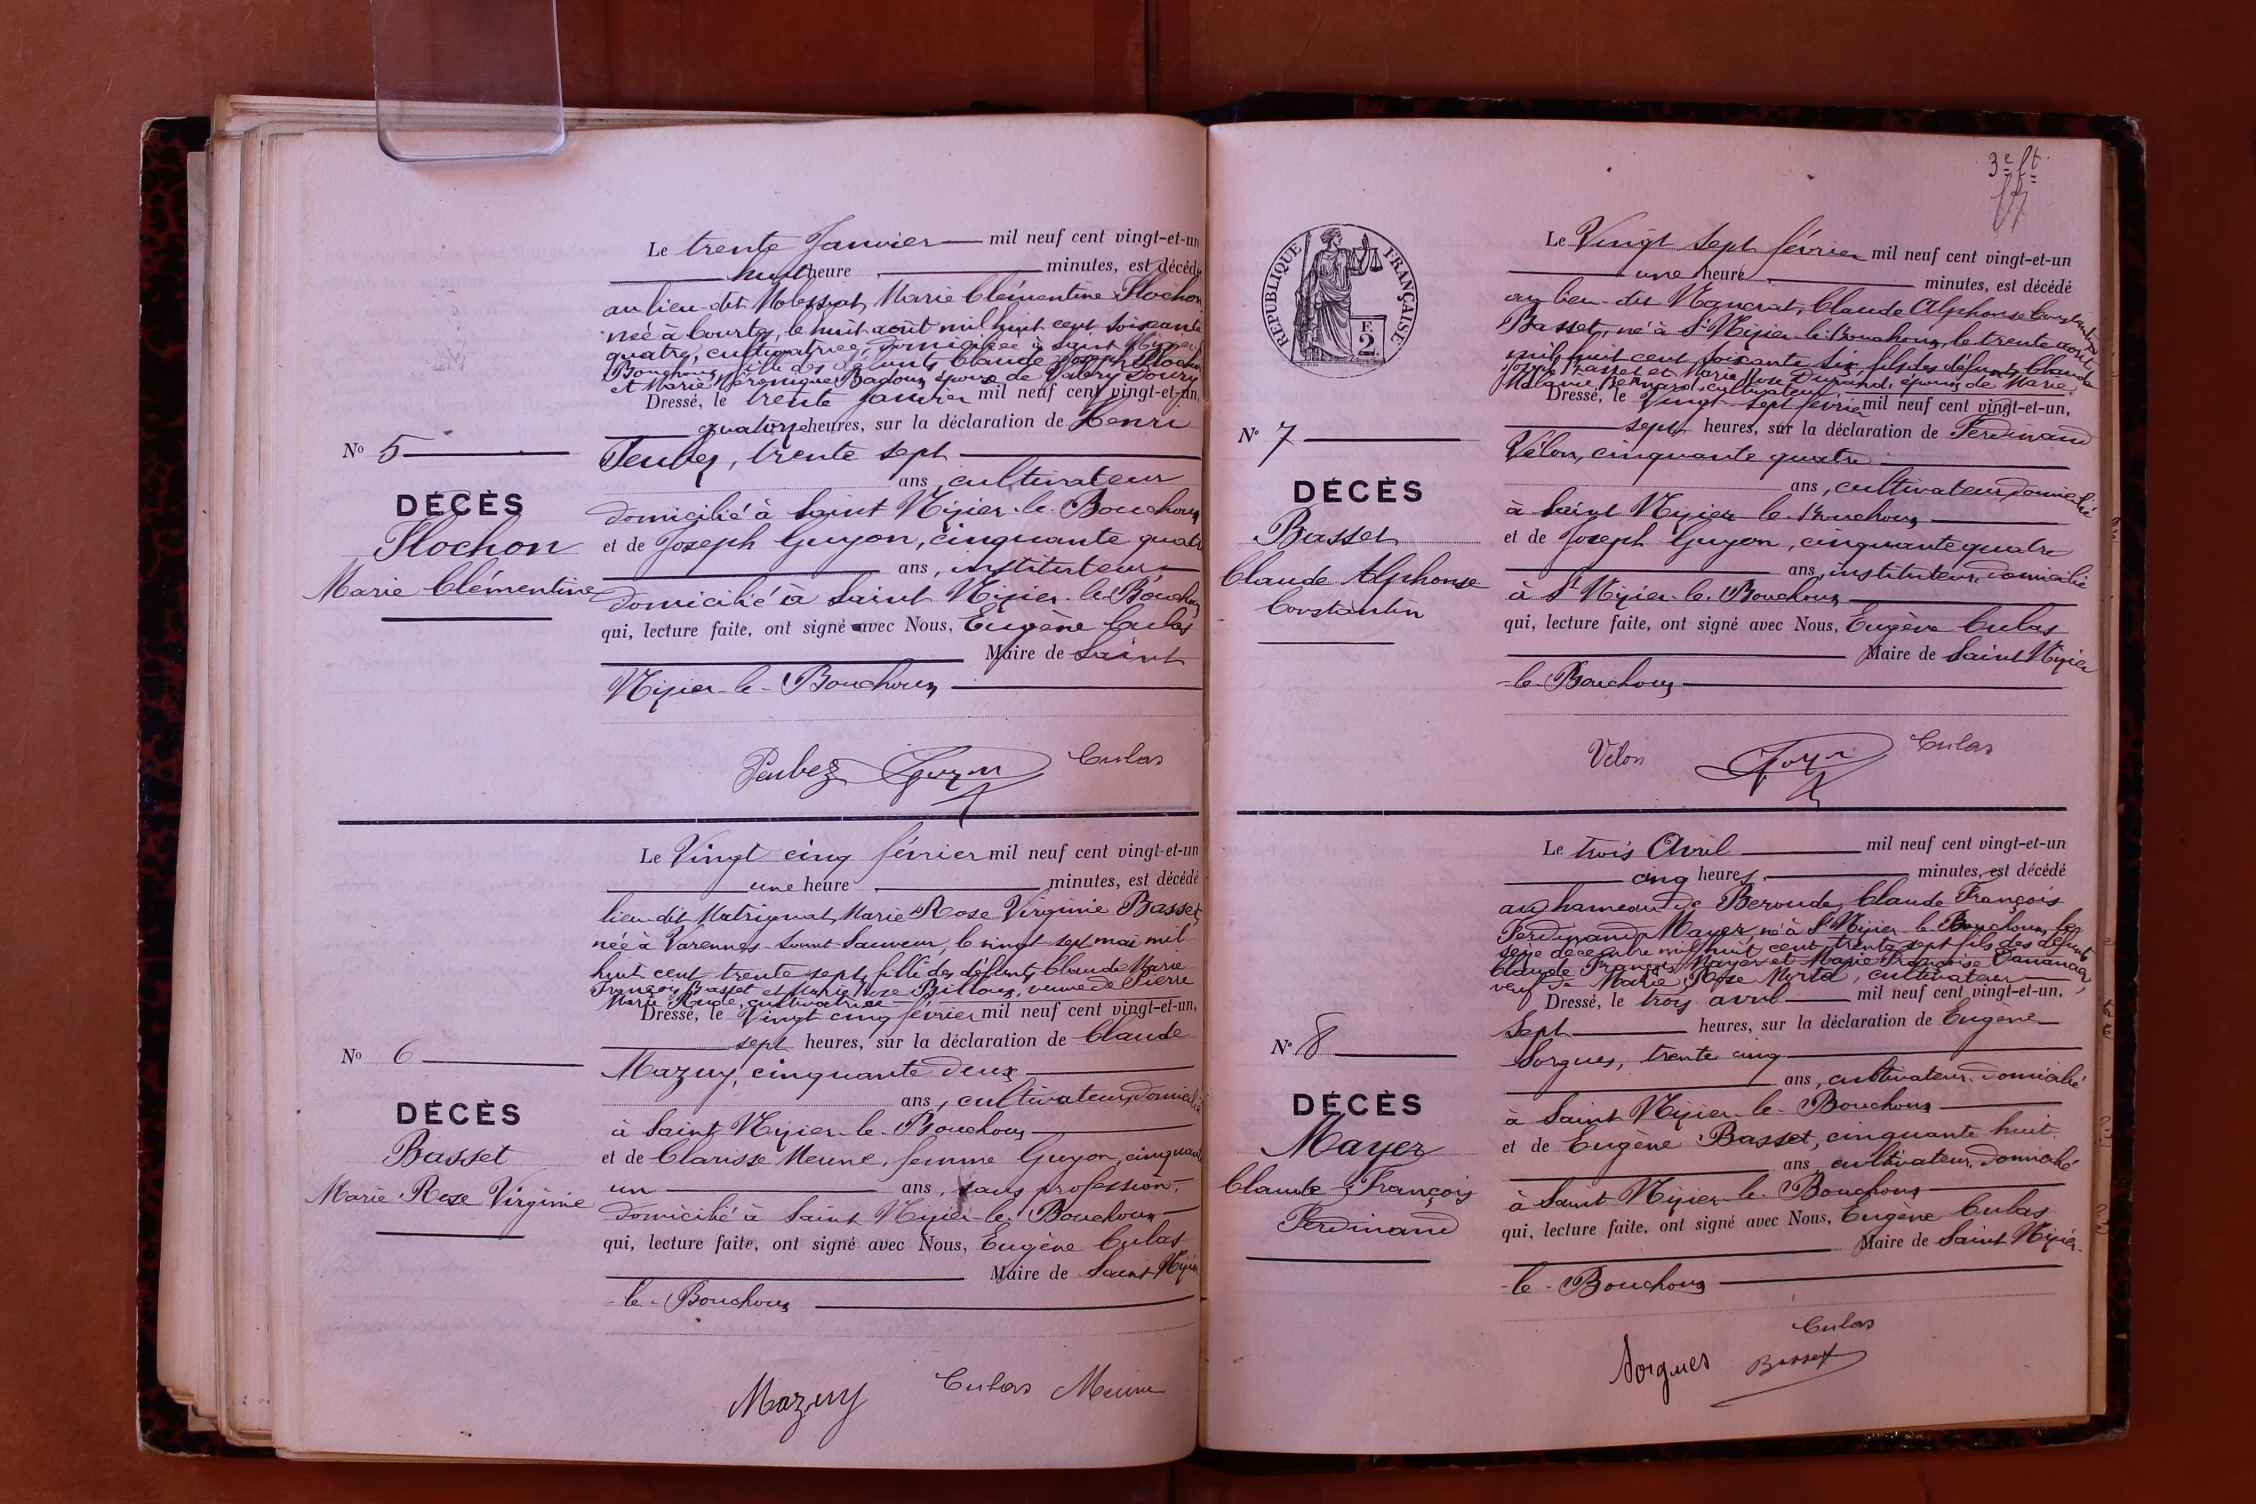 Le trente Janvier mil neuf cent vingt-et-un
huit heure minutes, est décédé
au lieu dit Molessiat, Marie Clémentine Flochon
née à Courtes, le huit août mil huit cent soixante
quatre, cultivatrice, domiciliée à Saint Nizier-le
Bouchoux, fille des défunts Claude Joseph Flochon
et Marie Véronique Badoux épouse de Valéry Poury
Dressé, le trente Janvier mil neuf cent vingt-et-un,
quatorze heures, sur la déclaration de Henri
N° 5
Peubez, trente sept
ans, cultivateur
DÉCÈS
domicilié à Saint Nizier-le-Bouchoux
Flochon
et de Joseph Guyon, cinquante quatre
ans, instituteur
Marie Clémentine
domicilié à Saint Nizier-le-Bouchoux
qui, lecture faite, ont signé avec Nous, Eugène Culas
Maire de Saint
Nizier-le-Bouchoux
Peubez Guyon Culas
Le Vingt cinq février mil neuf cent vingt-et-un
une heure minutes, est décédé
lieu dit Matrignat, Marie Rose Virginie Basset,
née à Varennes-Saint-Sauveur, le vingt sept mai mil
huit cent trente sept, fille des défunts Claude Marie
François Basset et Marie Rose Billoux, veuve de Pierre
Marie Rude, cultivatrice
Dressé, le Vingt cinq février mil neuf cent vingt-et-un,
sept heures, sur la déclaration de Claude
N° 6
Mazuy, cinquante deux
ans, cultivateur, domicilié
DÉCÈS
à Saint Nizier-le-Bouchoux
Basset
et de Clarisse Meune, femme Guyon, cinquante
Marie Rose Virginie
un ans, sans profession,
domicilié à Saint Nizier-le-Bouchoux
qui, lecture faite, ont signé avec Nous, Eugène Culas
Maire de Saint Nizier
-le-Bouchoux
Mazuy Culas Meune
3e ft
RÉPUBLIQUE FRANÇAISE
F.
2
Le Vingt sept février mil neuf cent vingt-et-un
une heure minutes, est décédé
au lieu-dit Claude Alphonse Constantin
Basset, né à St Nizier-le-Bouchoux, le trente août
mil huit cent soixante six, fils des défunts Claude
Joseph Basset et Marie Rose Durand, époux de Marie
Mélanie Bernard, cultivateur
Dressé, le Vingt sept février mil neuf cent vingt-et-un,
sept heures, sur la déclaration de Ferdinand
N° 7
Vélon, cinquante quatre
ans, cultivateur, domicilié
DÉCÈS
à Saint Nizier-le-Bouchoux
Basset
et de Joseph Guyon, cinquante quatre
ans, instituteur, domicilié
Claude Alphonse
à St Nizier-le-Bouchoux
Constantin
qui, lecture faite, ont signé avec Nous, Eugène Culas
Maire de Saint Nizier
-le-Bouchoux
Vélon Guyon Culas
Le trois Avril mil neuf cent vingt-et-un
cinq heures minutes, est décédé
au hameau de Beroude, Claude François
Ferdinand Mayer, né à St Nizier-le-Bouchoux, le
seize décembre mil huit cent trente sept fils des défunts
Claude François Mayer et Marie Françoise
veuf de Marie Rose cultivateur
Dressé, le trois avril mil neuf cent vingt-et-un,
Sept heures, sur la déclaration de Eugène
N° 8
Sorgues, trente cinq
ans, cultivateur, domicilié
DÉCÈS
à Saint Nizier-le-Bouchoux
Mayer
et de Eugène Basset, cinquante huit
ans, cultivateur, domicilié
Claude François
à Saint Nizier-le-Bouchoux
Ferdinand
qui, lecture faite, ont signé avec Nous, Eugène Culas
Maire de Saint Nizier-
-le-Bouchoux
Culas
Sorgues Basset